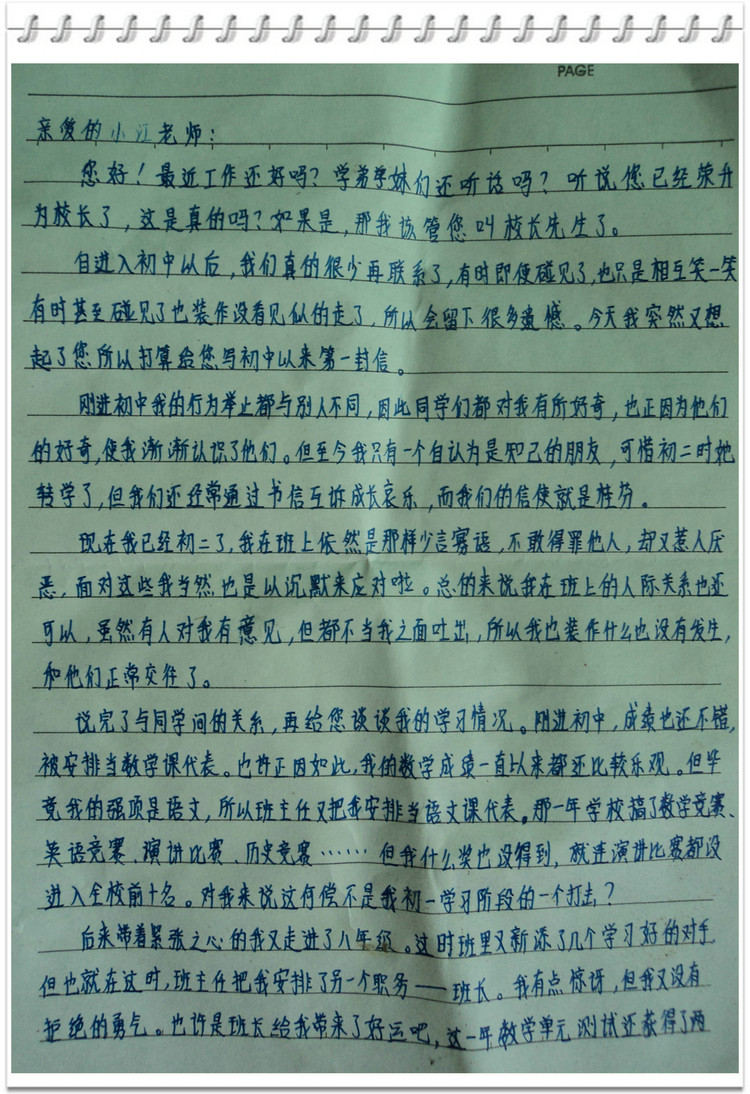 PAGE
亲爱的小江老师：
您好！最近工作还好吗？学弟学妹们还听话吗？听说您已经荣升
为校长了，这是真的吗？如果是，那我该管您叫校长先生了。
自进入初中以后，我们真的很少再联系了，有时即便碰见了，也只是相互笑一笑
有时甚至碰见了也装作没看见似的走了，所以会留下很多遗憾。今天我突然又想
起了您所以打算给您写初中以来第一封信。
刚进初中我的行为举止都与别人不同，因此同学们都对我有所好奇，也正因为他们
的好奇，使我渐渐认识了他们。但至今我只有一个自认为是知己的朋友，可惜初二时她
转学了，但我们还经常通过书信互诉成长哀乐，而我们的信使就是桂芬。
现在我已经初二了，我在班上依然是那样少言寡语，不敢得罪他人，却又惹人厌
恶，面对这些我当然也是以沉默来应对啦。总的来说我在班上的人际关系也还
可以，虽然有人对我有意见，但都不当我之面吐出，所以我也装作什么也没有发生，
和他们正常交往了。
说完了与同学间的关系，再给您谈谈我的学习情况。刚进初中，成绩也还不错，
被安排当数学课代表。也许正因如此，我的数学成绩一直以来都还比较乐观。但毕
竟我的强项是语文，所以班主任又把我安排当语文课代表。那一年学校搞了数学竞赛、
英语竞赛、演讲比赛、历史竞赛……但我什么奖也没得到，就连演讲比赛都没
进入全校前十名。对我来说这何偿不是我初一学习阶段的一个打击？
后来带着紧张之心的我又走进了八年级。这时班里又新添了几个学习好的对手
但也就在这时，班主任把我安排了另一个职务——班长。我有点惊讶，但我又没有
拒绝的勇气。也许是班长给我带来了好运吧，这一年数学单元测试还获得了两